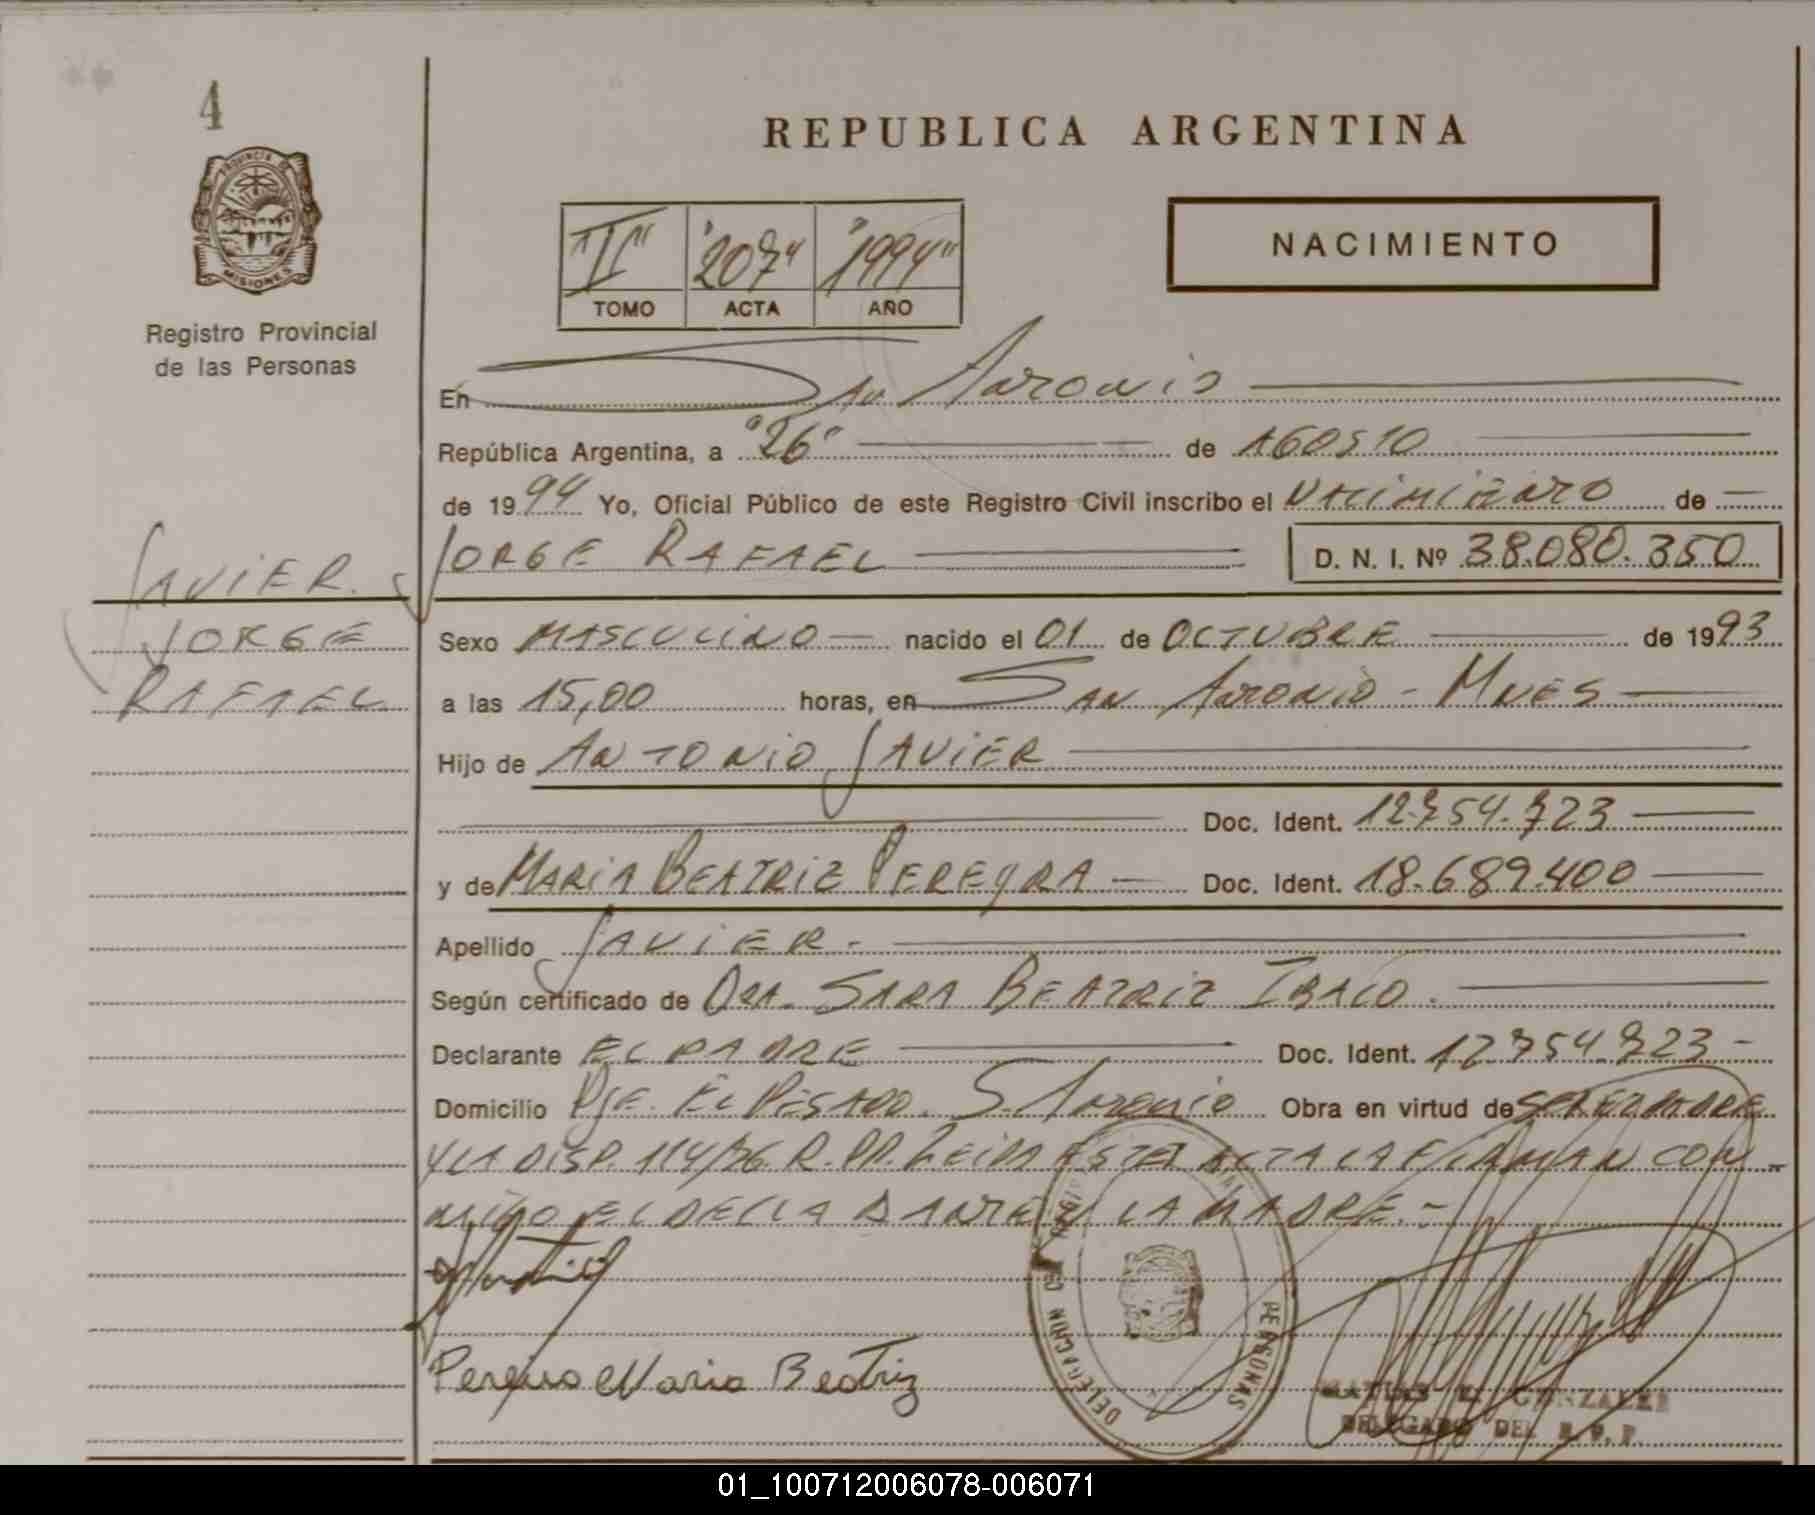 4
PROVINCIA DE
MISIONES
Registro Provincial
de las Personas
REPUBLICA ARGENTINA
"II" "207" "1994"
TOMO ACTA AÑO
NACIMIENTO
En San Antonio
República Argentina, a "26" de AGOSTO
de 1994 Yo, Oficial Público de este Registro Civil inscribo el NACIMIENTO de
JORGE RAFAEL D. N. I. Nº 38.080.350
JAVIER.
JORGE
RAFAEL
Sexo MASCULINO nacido el 01 de OCTUBRE de 1993
a las 15,00 horas, en SAN ANTONIO - MNES
Hijo de ANTONIO JAVIER
Doc. Ident. 12.754.723
y de MARIA BEATRIZ PEREYRA Doc. Ident. 18.689.400
Apellido JAVIER.
Según certificado de DRA. SARA BEATRIZ
Declarante EL PADRE Doc. Ident. 12.754.723
Domicilio PJE. EL PESADO. S. Antonio Obra en virtud de SER EL PADRE
Y LA DISP. 114/76. R.PP. LEIDA ESTE ACTA LA FIRMAN CON
MIGO EL DECLARANTE Y LA MADRE.-
Maria Beatriz
DELEGACION
PERSONAS
GONZALEZ
DELEGADO DEL R.P.P.
01_100712006078-006071